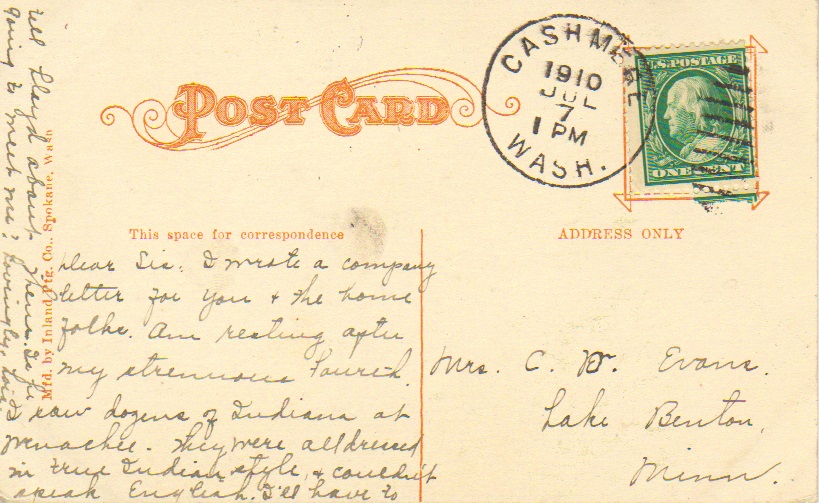 POST CARD
CASHMERE
1910
JUL
7
1 PM
WASH.
U.S. POSTAGE
ONE CENT
This space for correspondence
ADDRESS ONLY
Mfd. by Inland Ptg. Co., Spokane, Wash
Dear Sis. I wrote a company
letter for you & the home
folks. Am resting after
my strenuous Fourth.
I saw dozens of Indians at
Wenachee. They were all dressed
in true Indian style, & couldn't
speak English. I'll have to
tell Lloyd about them. Is he
going to meet me? Lovingly, Lois
Mrs. C. W. Evans.
Lake Benton,
Minn.